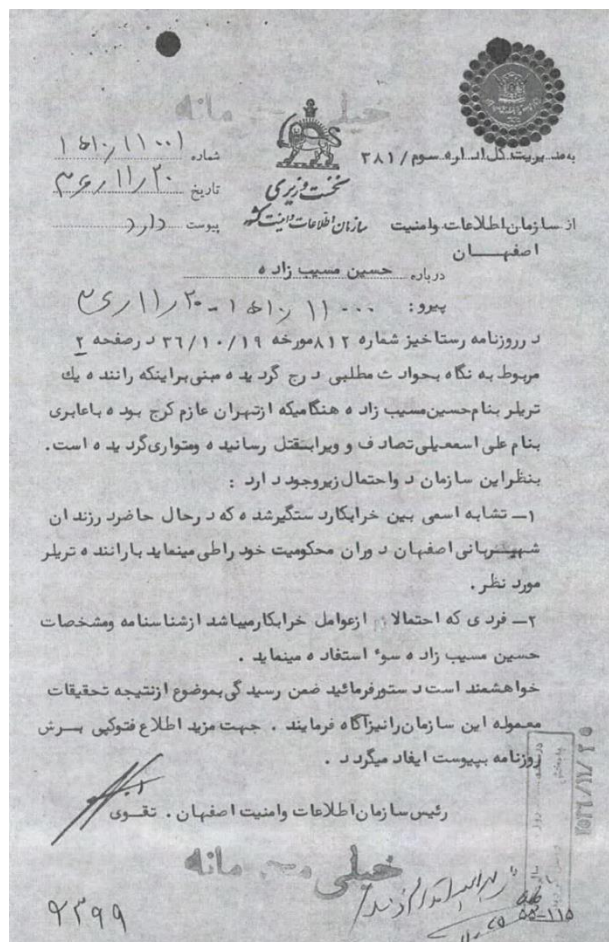 خیلی محرمانه
شماره
به مدیریت کل اداره سوم/۳۸۱
تاریخ
نخست وزیری
از سازمان اطلاعات وامنیت
سازمان اطلاعات و امنیت کشور
پیوست دارد
اصفهان
درباره حسین مسیب زاده
پیرو:
در روزنامه رستاخیز شماره ۸۱۲ مورخه ۳۶/۱۰/۱۹ در صفحه ۲
مربوط به نگاه بحوادث مطلبی درج گردیده مبنی براینکه راننده یك
تریلر بنام حسین مسیب زاده هنگامیکه ازتهران عازم کرج بوده باعابری
بنام علی اسمعیلی تصادف و ویرابقتل رسانیده ومتواری گردیده است.
بنظراین سازمان دواحتمال زیروجود دارد :
۱ـ تشابه اسمی بین خرابکاردستگیرشده که درحال حاضردرزندان
شهربانی اصفهان دوران محکومیت خود راطی مینماید باراننده تریلر
مورد نظر.
۲ـ فردی که احتمالا ازعوامل خرابکارمیباشد ازشناسنامه ومشخصات
حسین مسیب زاده سوء استفاده مینماید .
خواهشمند است دستورفرمائید ضمن رسیدگی بموضوع ازنتیجه تحقیقات
معموله این سازمان رانیزآگاه فرمایند . جهت مزید اطلاع فتوکپی برش
روزنامه بپیوست ایفاد میگردد .
رئیس سازمان اطلاعات وامنیت اصفهان . تقوی
خیلی محرمانه
۵۵-۱۱۵